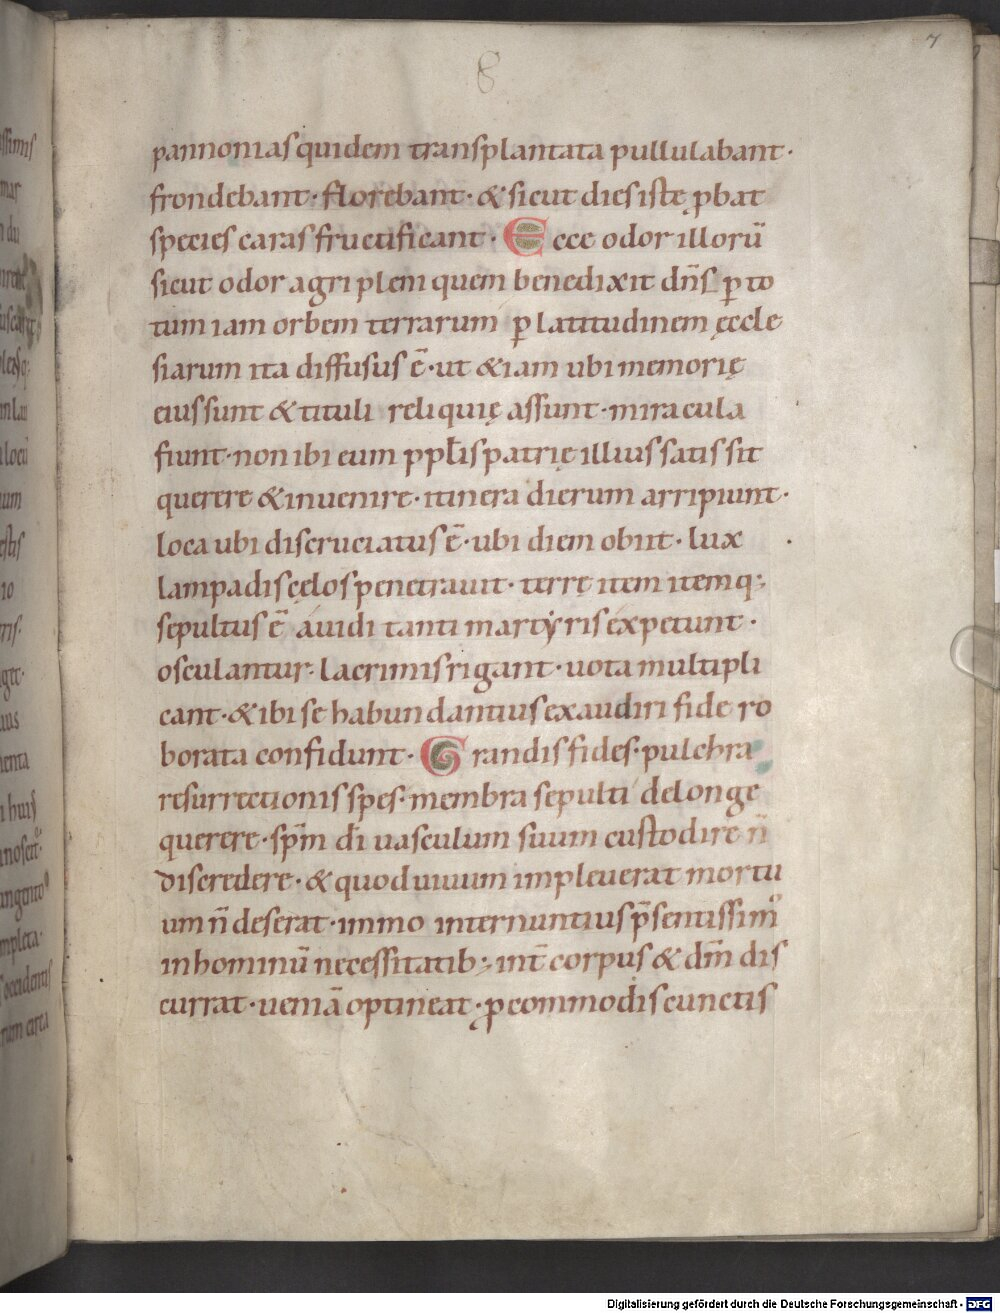 7
8
pannonias quidem transplantata pullulabant·
frondebant· florebant· & sicut dies istę ꝓbat
species caras fructificant· Ecce odor illorū
sicut odor agri pleni quem benedixit dn̄s ꝑ to
tum iam orbem terrarum ꝑ latitudinem ęccle
siarum ita diffusus ē· ut &iam ubi memorię
eius sunt & tituli reliquię assunt· miracula
fiunt· non ibi eum ppl̄is patrię illius satis sit
querere & inuenire· itinera dierum arripiunt·
loca ubi discruciatus ē· ubi diem obiit· lux
lampadis cęlos penetrauit· terrę item itemq;
sepultus ē auidi tanti martẏris expetunt·
osculantur· lacrimis rigant· uota multipli
cant· & ibi se habundantius exaudiri fide ro
borata confidunt· Grandis fides· pulchra
resurrectionis spes· membra sepulti delonge
querere· sp̄m dī uasculum suum custodire n̄
discredere· & quod uiuum impleuerat mortu
um n̄ deserat· immo internuntius p̄sentissimꝰ
in hominū necessitatib; int̄ corpus & dm̄ dis
currat· ueniā optineat· ꝓ commodis cunctis
Digitalisierung gefördert durch die Deutsche Forschungsgemeinschaft - DFG